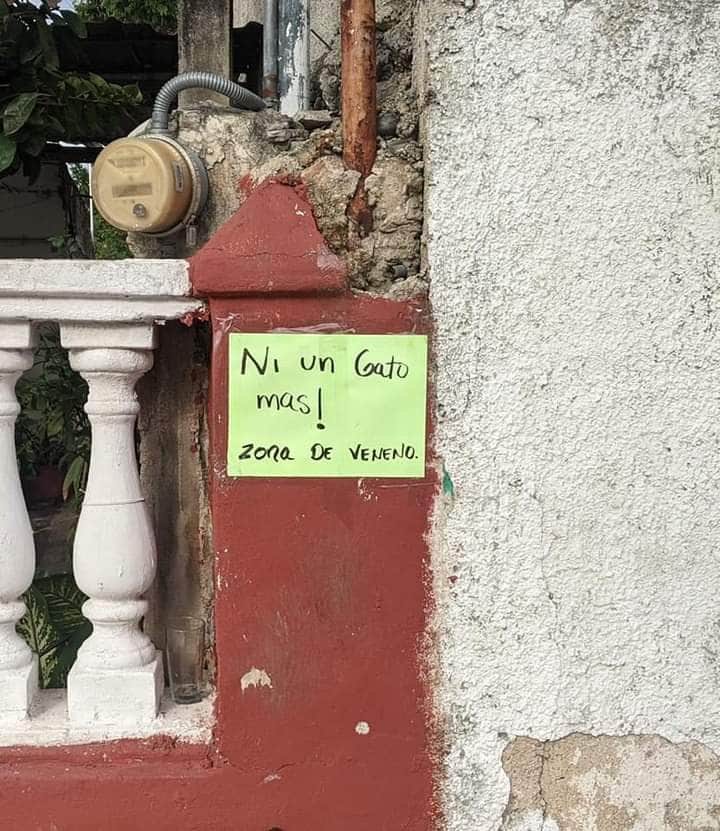 Ni un Gato
mas!
Zona DE VENENO.